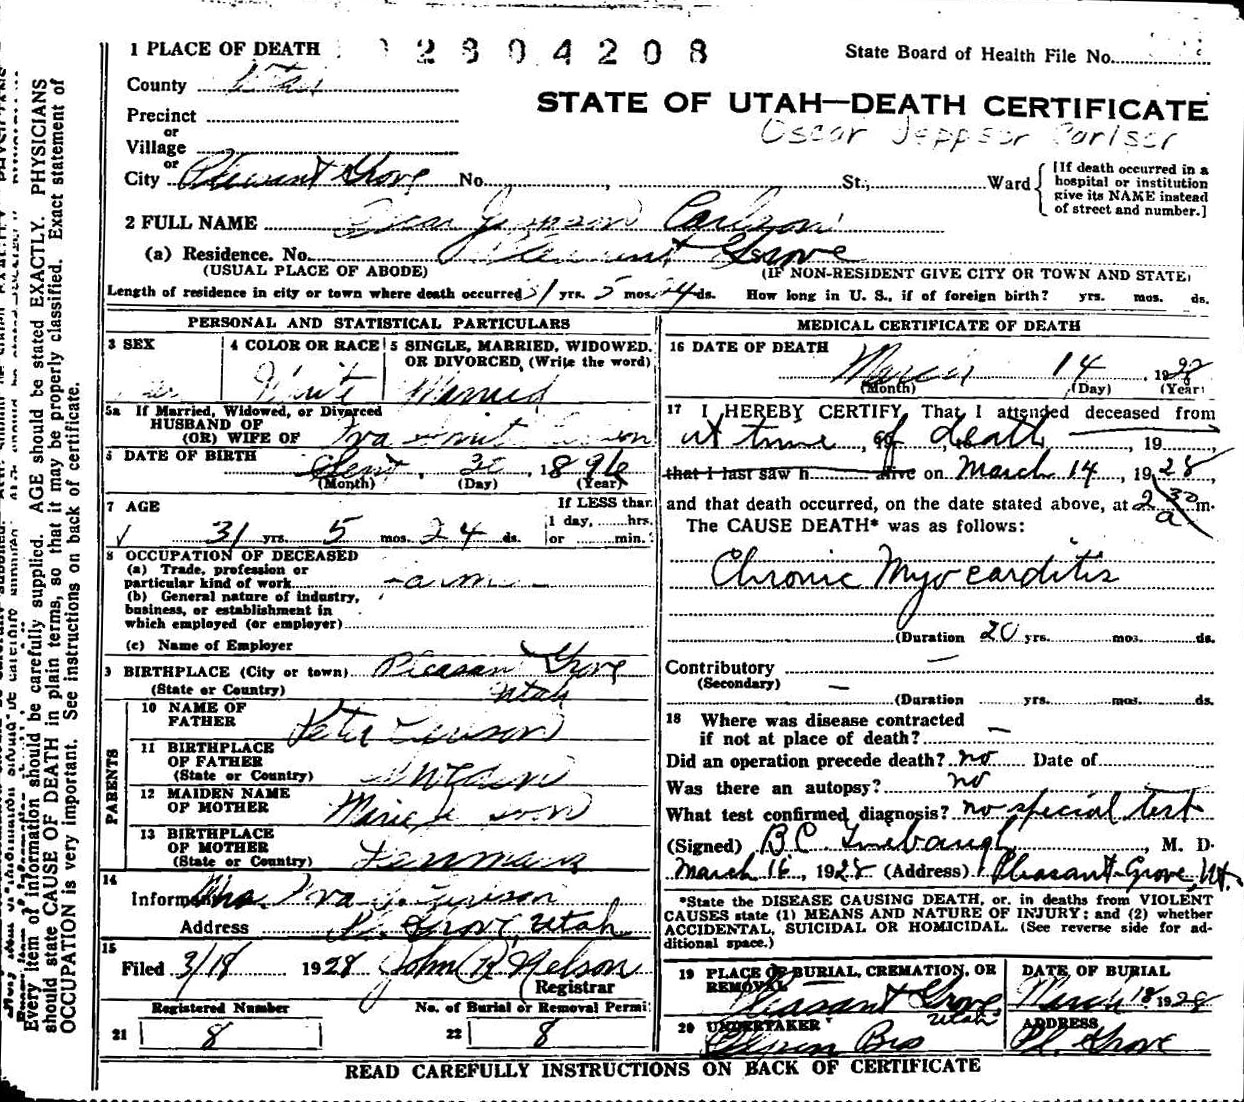 1 PLACE OF DEATH
2 8 0 4 2 0 8
State Board of Health File No.
County Utah
STATE OF UTAH—DEATH CERTIFICATE
Precinct
or
Village
Oscar Jeppson Carlson
or
City Pleasant Grove No. St., Ward
[If death occurred in a
hospital or institution
give its NAME instead
of street and number.]
2 FULL NAME Jeppson Carlson
(a) Residence. No. Pleasant Grove
(USUAL PLACE OF ABODE) (IF NON-RESIDENT GIVE CITY OR TOWN AND STATE)
Length of residence in city or town where death occurred 31 yrs. 5 mos. 24 ds. How long in U. S., if of foreign birth? yrs. mos. ds.
PERSONAL AND STATISTICAL PARTICULARS
3 SEX
4 COLOR OR RACE
White
5 SINGLE, MARRIED, WIDOWED,
OR DIVORCED, (Write the word)
Married
5a If Married, Widowed, or Divorced
HUSBAND OF
(OR) WIFE OF Iva
6 DATE OF BIRTH
Sept. 30 1896
(Month) (Day) (Year)
7 AGE
31 yrs. 5 mos. 24 ds.
If LESS than
1 day, hrs.
or min.
8 OCCUPATION OF DECEASED
(a) Trade, profession or
particular kind of work
(b) General nature of industry,
business, or establishment in
which employed (or employer)
(c) Name of Employer
9 BIRTHPLACE (City or town) Pleasant Grove
(State or Country) Utah
PARENTS
10 NAME OF
FATHER Peter
11 BIRTHPLACE
OF FATHER
(State or Country)
12 MAIDEN NAME
OF MOTHER
13 BIRTHPLACE
OF MOTHER
(State or Country)
14
Informant Mrs. Iva J.
Address Pl. Grove, Utah
15
Filed 3/18 1928 John R Nelson
Registrar
Registered Number No. of Burial or Removal Permit
21 8 22 8
MEDICAL CERTIFICATE OF DEATH
16 DATE OF DEATH
March 14, 1928
(Month) (Day) (Year)
17 I HEREBY CERTIFY, That I attended deceased from
at time of death, 19
that I last saw h alive on March 14, 1928
and that death occurred, on the date stated above, at 2 30 a m.
The CAUSE DEATH* was as follows:
Chronic Myocarditis
(Duration 20 yrs. mos. ds.
Contributory
(Secondary)
(Duration yrs. mos. ds.
18 Where was disease contracted
if not at place of death?
Did an operation precede death? no Date of
Was there an autopsy? no
What test confirmed diagnosis? no special test
(Signed) B C Linebaugh, M. D.
March 16, 1928 (Address) Pleasant Grove, Ut.
*State the DISEASE CAUSING DEATH, or, in deaths from VIOLENT
CAUSES state (1) MEANS AND NATURE OF INJURY; and (2) whether
ACCIDENTAL, SUICIDAL OR HOMICIDAL. (See reverse side for ad-
ditional space.)
19 PLACE OF BURIAL, CREMATION, OR
REMOVAL
Pleasant Grove
Utah
DATE OF BURIAL
March 18 1928
20 UNDERTAKER
Bros
ADDRESS
Pl. Grove
READ CAREFULLY INSTRUCTIONS ON BACK OF CERTIFICATE
Every item of information should be carefully supplied. AGE should be stated EXACTLY. PHYSICIANS
should state CAUSE OF DEATH in plain terms, so that it may be properly classified. Exact statement of
OCCUPATION is very important. See instructions on back of certificate.